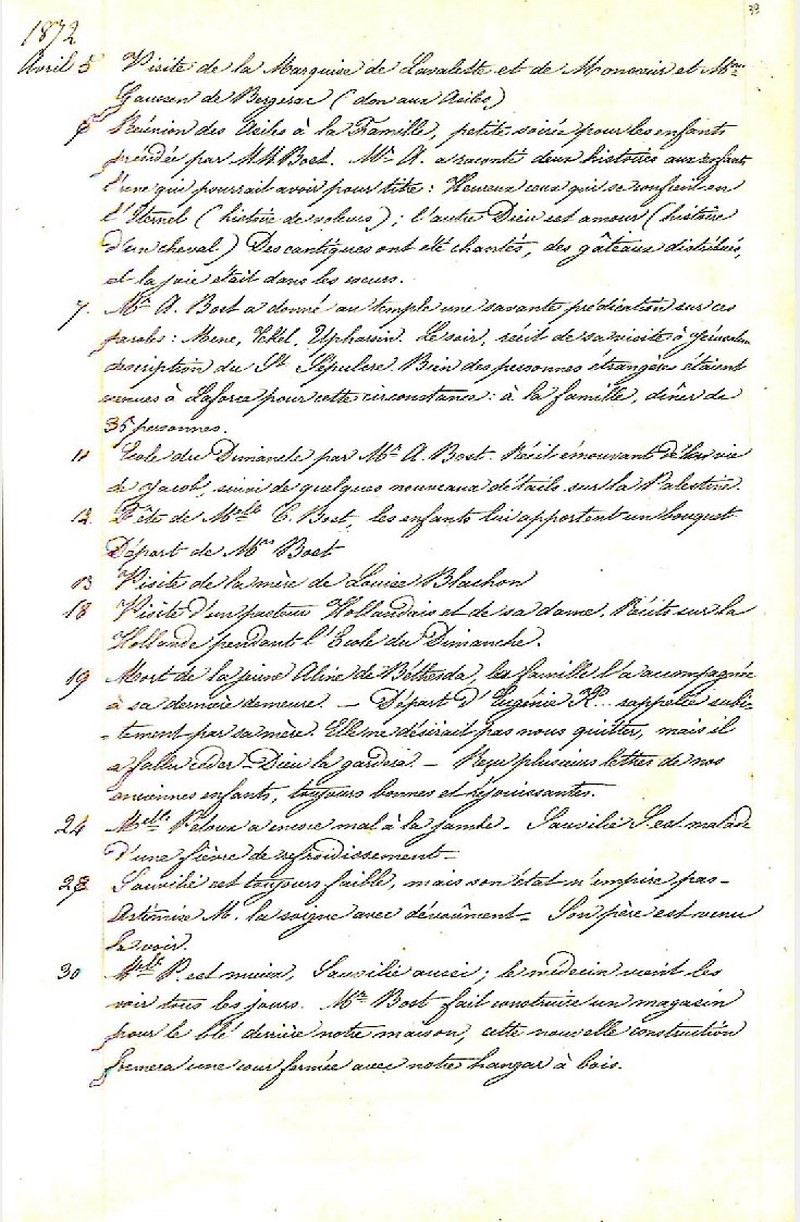 39
1872
Avril 5 Visite de la Marquise de Lavalette et de Monsieur et Mme
Gaussen de Bergerac (don aux Asiles)
6 Réunion des Asiles à la Famille, petite soirée pour les enfants
présidée par MM Bost. Mr A. a raconté deux histoires aux enfants
l'une qui pourrait avoir pour titre : Heureux ceux qui se confient en
l'Eternel (histoire de voleurs) ; l'autre Dieu est amour (histoire
d'un cheval) Des cantiques ont été chantés, des gâteaux distribués,
et la joie était dans les coeurs.
7. Mr A. Bost a donné au temple une savante prédication sur ces
paroles : Mene, Tekel, Upharsin. Le soir, récit de sa visite à Jérusalem
description du St Sépulcre. Bien des personnes étrangères étaient
venues à Laforce pour cette circonstance : à la famille, dîner de
35 personnes.
11 Ecole du Dimanche par Mr A. Bost. Récit émouvant de la vie
de Jacob, suivi de quelques nouveaux détails sur la Palestine.
12. Fête de Melle C. Bost, les enfants lui apportent un bouquet
Départ de Mrs Bost
13 Visite de la mère de Louise Blachon
18 Visite d'un pasteur Hollandais et de sa dame. Récits sur la
Hollande pendant l'Ecole du Dimanche.
19 Mort de la jeune Aline de Béthesda, la famille l'a accompagnée
à sa dernière demeure. — Départ d'Eugénie R... rappelée subi-
-tement par sa mère. Elle ne désirait pas nous quitter, mais il
a fallu céder — Dieu la gardera. — Reçu plusieurs lettres de nos
anciennes enfants, toujours bonnes et réjouissantes.
24 Melle Peloux a encore mal à la jambe. Sauvilié S. est malade
d'une fièvre de refroidissement —
28 Sauvilié est toujours faible, mais son état n'empire pas —
Artémise M. la soigne avec dévoûment — Son père est venu
la voir.
30 Melle P. est mieux, Sauvilié aussi ; le médecin vient les
voir tous les jours. Mr Bost fait construire un magasin
pour le blé derrière notre maison, cette nouvelle construction
formera une cour fermée avec notre hangar à bois.